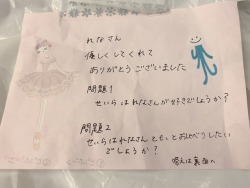 れなさん
優しくしてくれて
ありがとうございました
問題1
せいらはれなさんが好きでしょうか?
問題2
せいらはれなさんともっとおしゃべりしたい
でしょうか?
答えは裏面へ